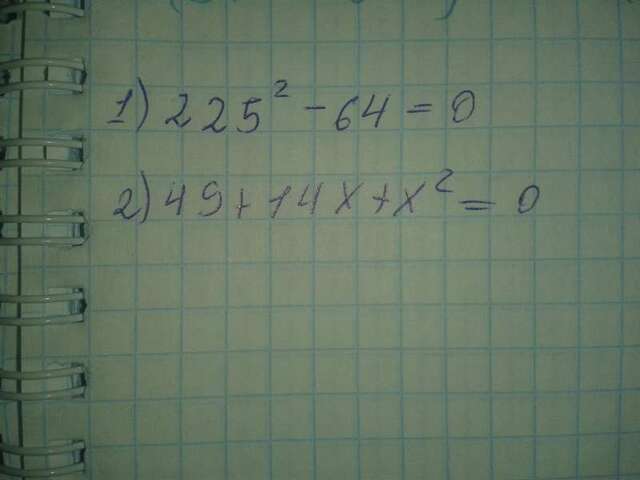 1) 225² - 64 = 0
2) 49 + 14x + x² = 0